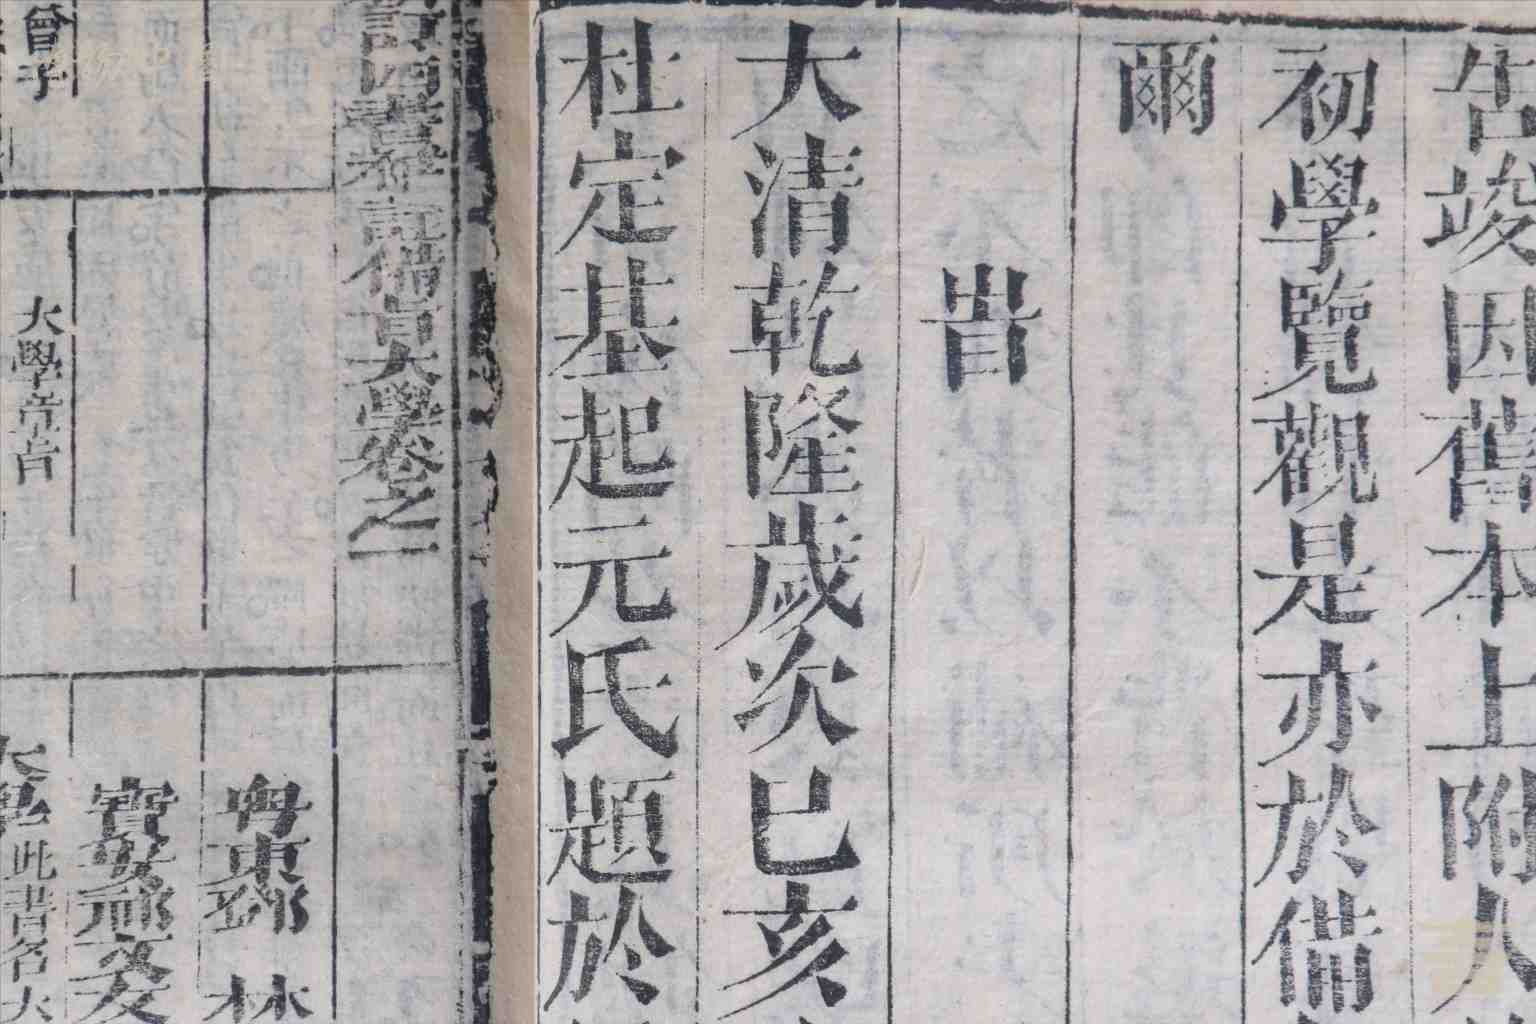 告竣因舊本上附人
初學覽觀是亦於備
爾
旹
大清乾隆歲次已亥
杜定基起元氏題於
四書
備旨大學卷之一
粵東鄧 林
寶安祁文友
曾子
大學章旨
此書名大